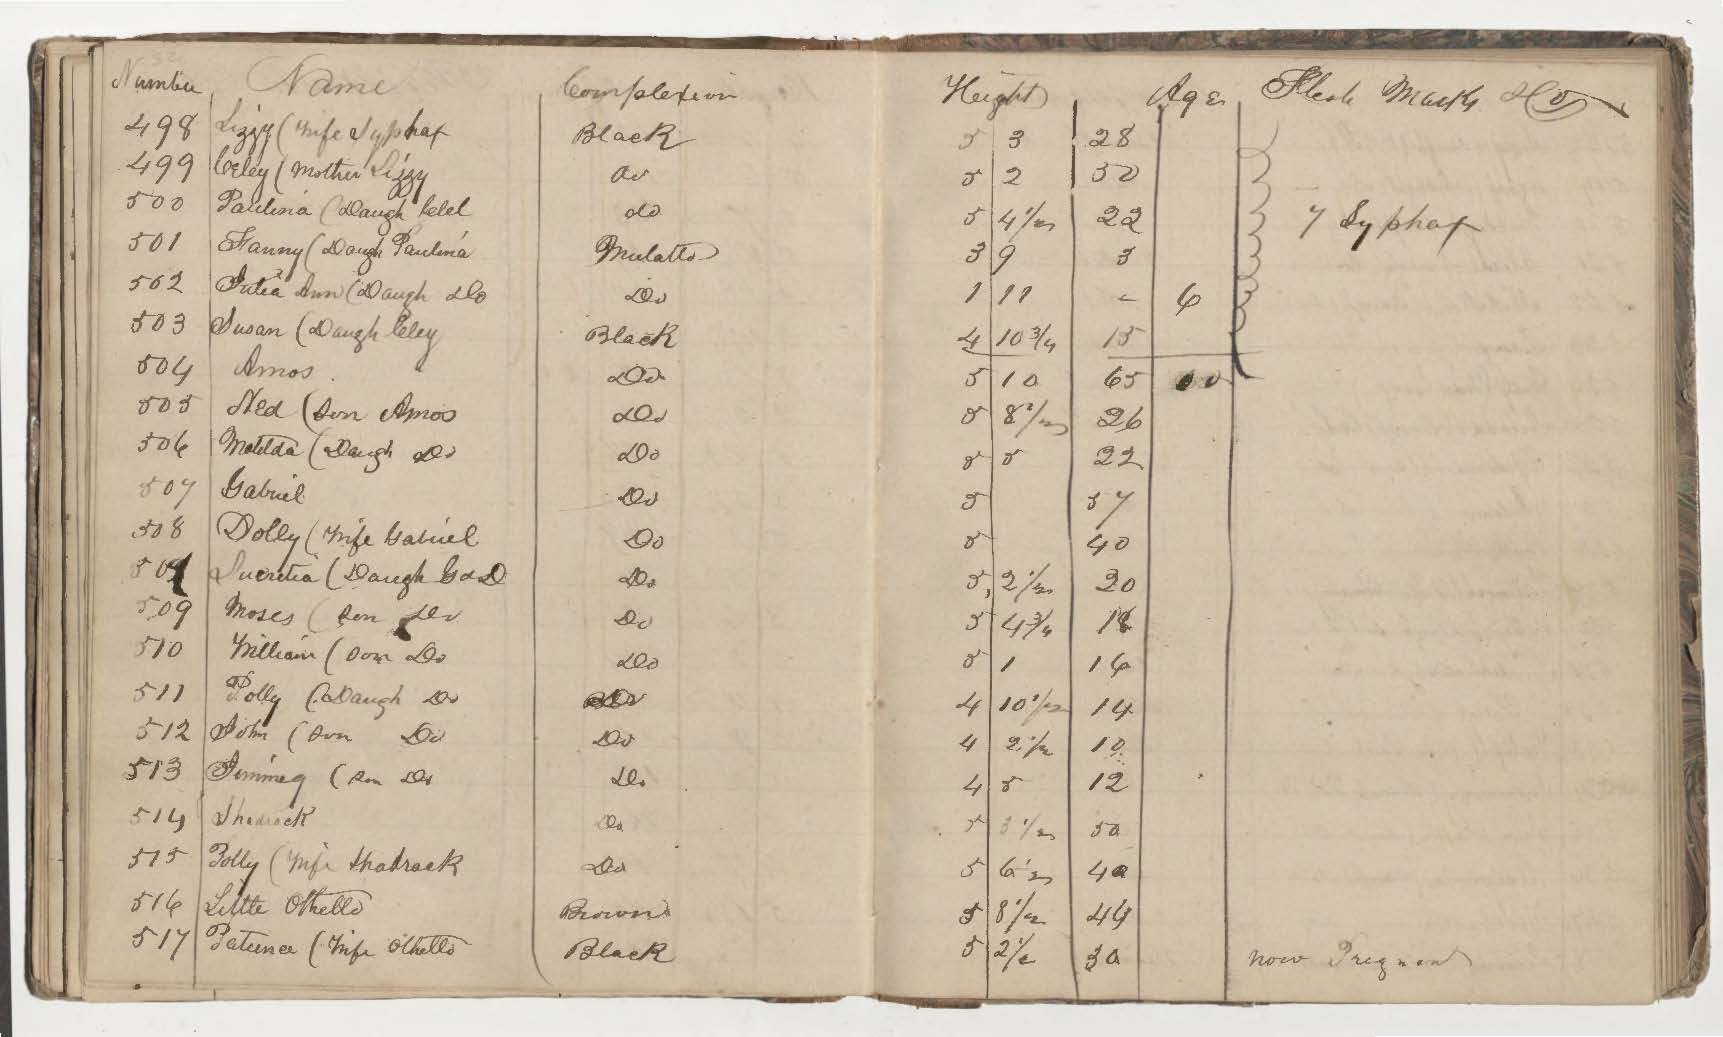 Number Name Complexion Height Age Flesh Marks &c
498 Lizzy (Wife Syphax Black 5 3 28
499 Celey (Mother Lizzy Do 5 2 50
500 Paulina (Daugh Celel do 5 4 1/2 22 7 Syphax
501 Fanny (Daugh Paulina Mulatto 3 9 3
502 Julia Ann (Daugh Do Do 1 11 - 6
503 Susan (Daugh Celey Black 4 10 3/4 15
504 Amos Do 5 10 65
505 Ned (Son Amos Do 5 8 1/2 26
506 Matilda (Daugh Do Do 5 5 22
507 Gabriel Do 5 57
508 Dolly (Wife Gabriel Do 5 40
Lucretia (Daugh G & D Do 5 2 1/2 20
509 Moses (Son Do Do 5 4 3/4 18
510 William (Son Do Do 5 1 16
511 Polly (Daugh Do Do 4 10 1/2 14
512 John (Son Do Do 4 2 1/2 10
513 Jimmey (Son Do Do 4 5 12
514 Shadrack Do 5 3 1/2 50
515 Polly (Wife Shadrack Do 5 6 1/2 40
516 Little Othello Brown 5 8 1/2 44
517 Patience (Wife Othello Black 5 2 1/2 30 now Pregnant